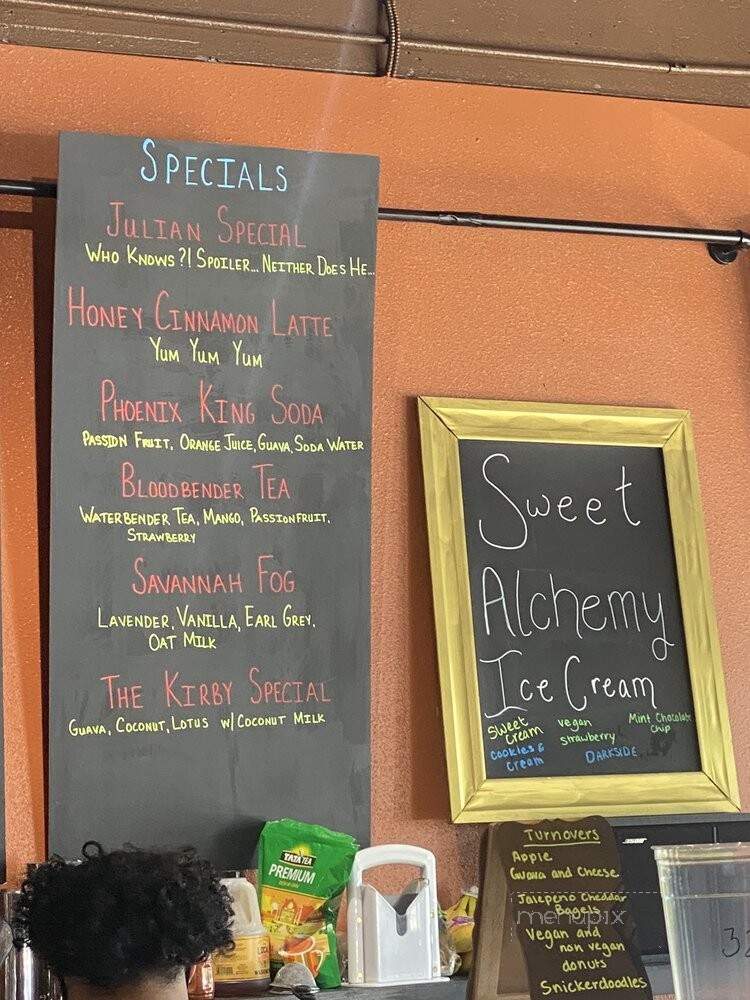 SPECIALS
JULIAN SPECIAL
WHO KNOWS?! SPOILER... NEITHER DOES HE...
HONEY CINNAMON LATTE
YUM YUM YUM
PHOENIX KING SODA
PASSION FRUIT, ORANGE JUICE, GUAVA, SODA WATER
BLOODBENDER TEA
WATERBENDER TEA, MANGO, PASSIONFRUIT,
STRAWBERRY
SAVANNAH FOG
LAVENDER, VANILLA, EARL GREY,
OAT MILK
THE KIRBY SPECIAL
GUAVA, COCONUT, LOTUS W/ COCONUT MILK
Sweet
Alchemy
Ice Cream
Sweet
Cream
vegan
strawberry
Mint Chocolate
Chip
Cookies &
Cream
DARKSIDE
TATA TEA
PREMIUM
Turnovers
Apple
Guava and Cheese
Jalepeno Cheddar
Bagels
Vegan and
non vegan
donuts
Snickerdoodles
menupix
BOSE